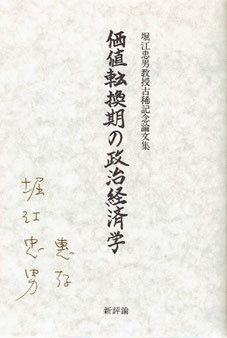 堀江忠男教授古稀記念論文集
価値転換期の政治経済学
恵存
堀江忠男
新評論